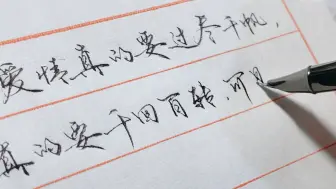 爱情真的要过尽千帆，
真的要千回百转，可